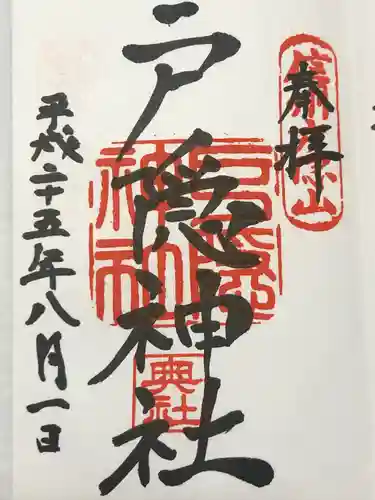 奉拝
信州戸隠山
戸隠神社
戸隠神社
奥社
平成二十五年八月一日